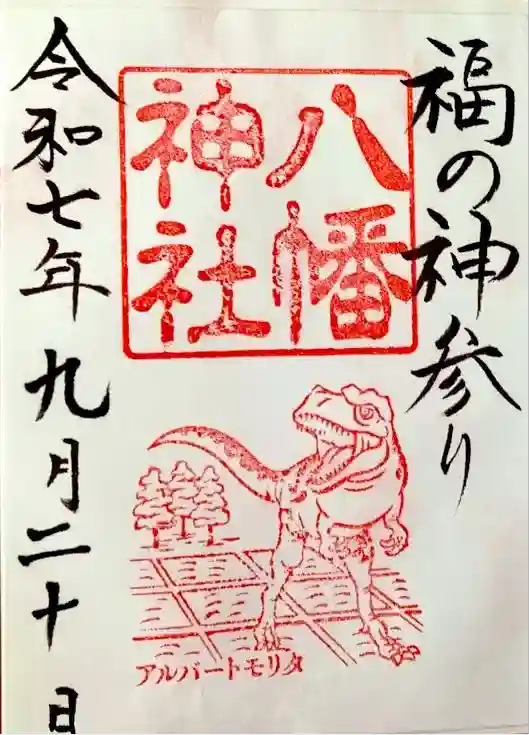 福の神参り
八幡
神社
アルバートモリタ
令和七年九月二十日